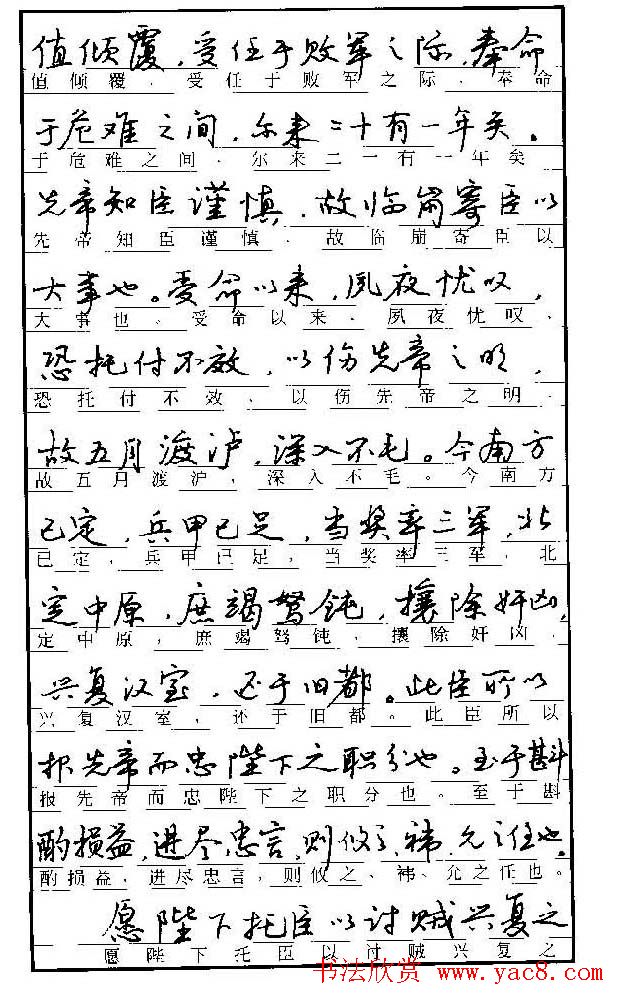 值倾覆，受任于败军之际，奉命
值倾覆，受任于败军之际，奉命
于危难之间，尔来二十有一年矣。
于危难之间，尔来二一有一年矣
先帝知臣谨慎，故临崩寄臣以
先帝知臣谨慎，故临崩寄臣以
大事也。受命以来，夙夜忧叹，
大事也。受命以来，夙夜忧叹，
恐托付不效，以伤先帝之明，
恐托付不效，以伤先帝之明，
故五月渡泸，深入不毛。今南方
故五月渡沪，深入不毛。今南方
已定，兵甲已足，当奖率三军，北
已定，兵甲已足，当奖率三军，北
定中原，庶竭驽钝，攘除奸凶，
定中原，庶竭驽钝，攘除奸凶，
兴复汉室，还于旧都。此臣所以
兴复汉室，还于旧都。此臣所以
报先帝而忠陛下之职分也。至于斟
报先帝而忠陛下之职分也。至于斟
酌损益，进尽忠言，则攸之、祎、允之任也。
酌损益，进尽忠言，则攸之、祎、允之任也。
愿陛下托臣以讨贼兴复之
愿陛下托臣以讨贼兴复之
书法欣赏 www.yac8.com